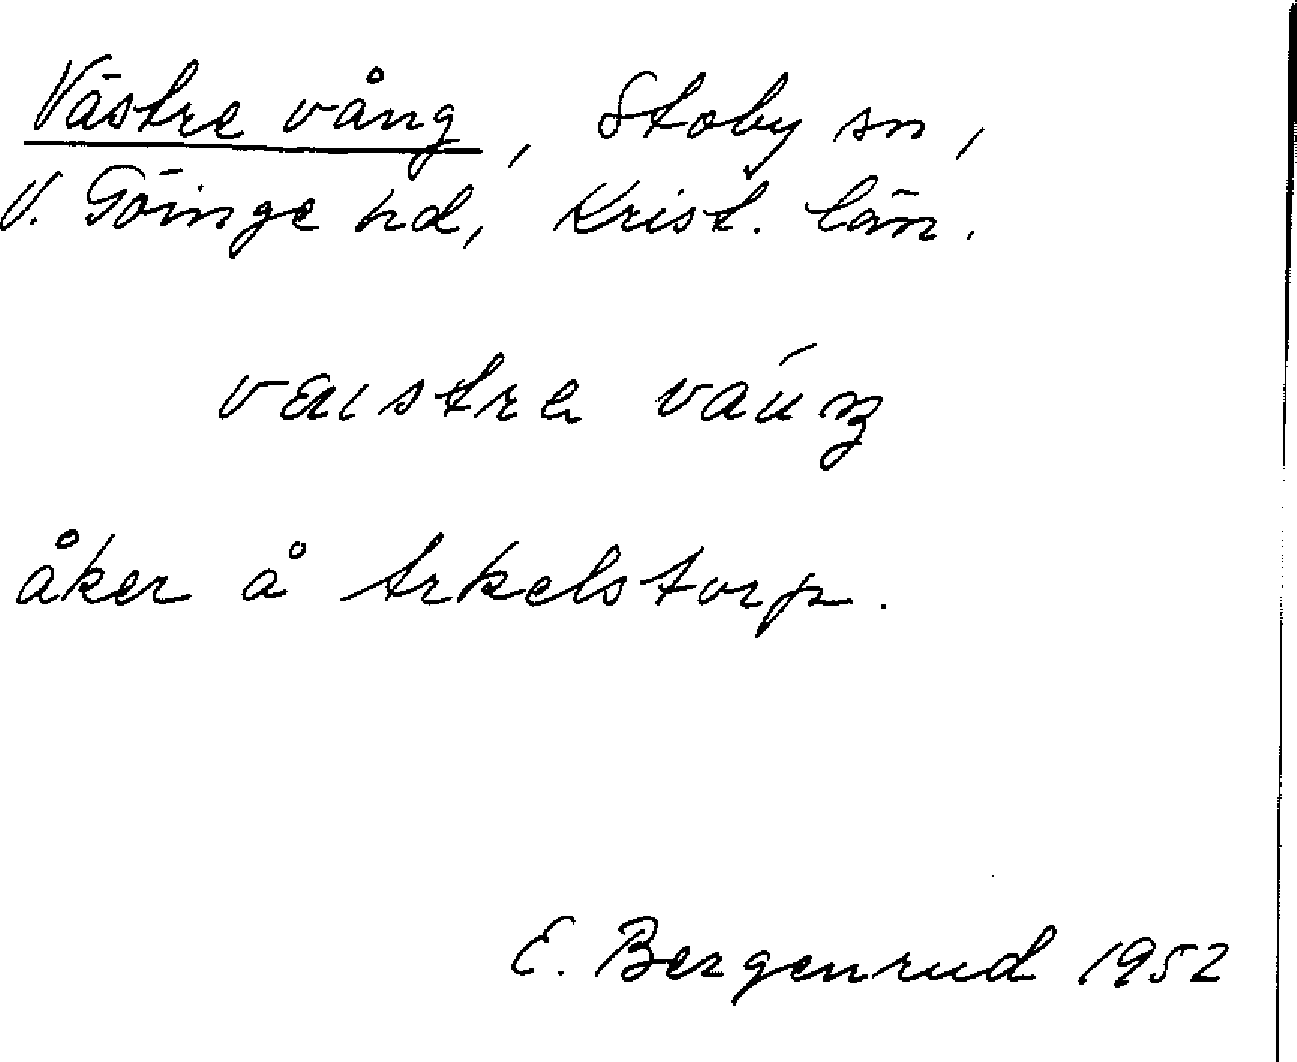 Västre vång, Stoby sn,
V. Göinge hd, Krist. län.
væustrə váuŋ
åker å Arkelstorp.
E. Bergenrud 1952